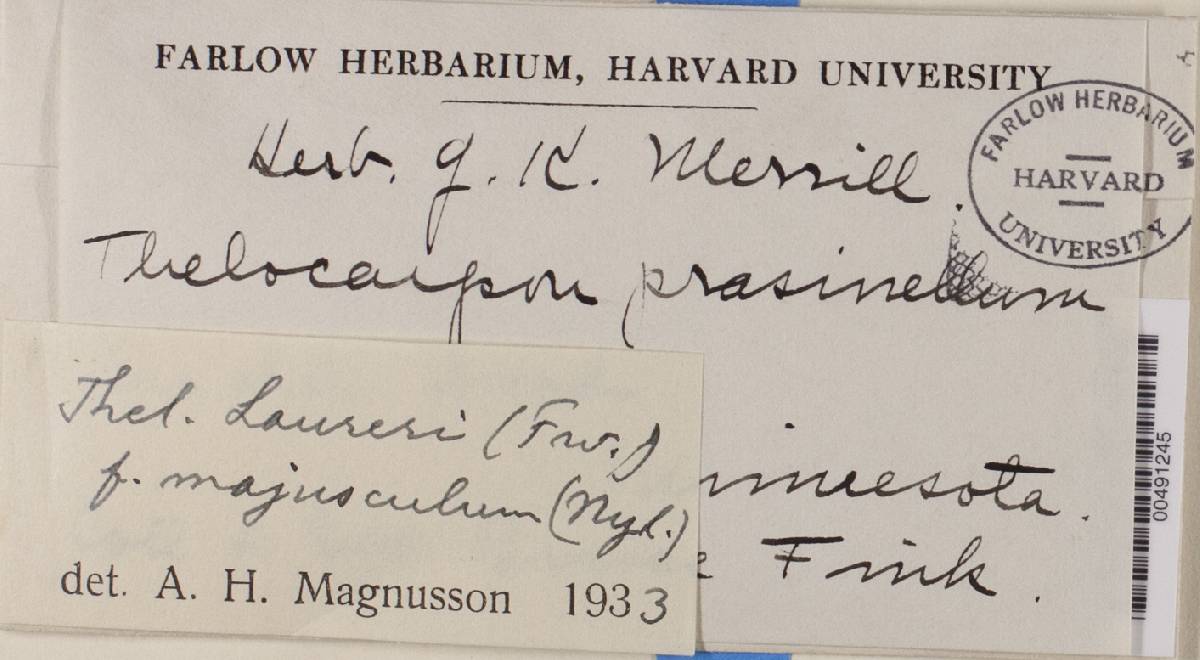 FARLOW HERBARIUM, HARVARD UNIVERSITY
Herb. G. K. Merrill.
FARLOW HERBARIUM
HARVARD
UNIVERSITY
Thelocarpon prasinellum
Thel. Laureri (Fw.)
f. majusculum (Nyl.)
det. A. H. Magnusson 1933
innesota.
Fink.
00491245